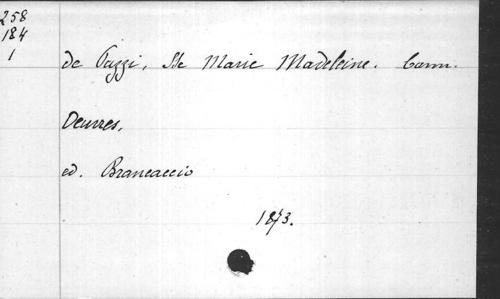 258
184
1
de Pazzi, Ste Marie Madeleine. Carm.
Oeuvres,
ed. Brancaccio
1873.